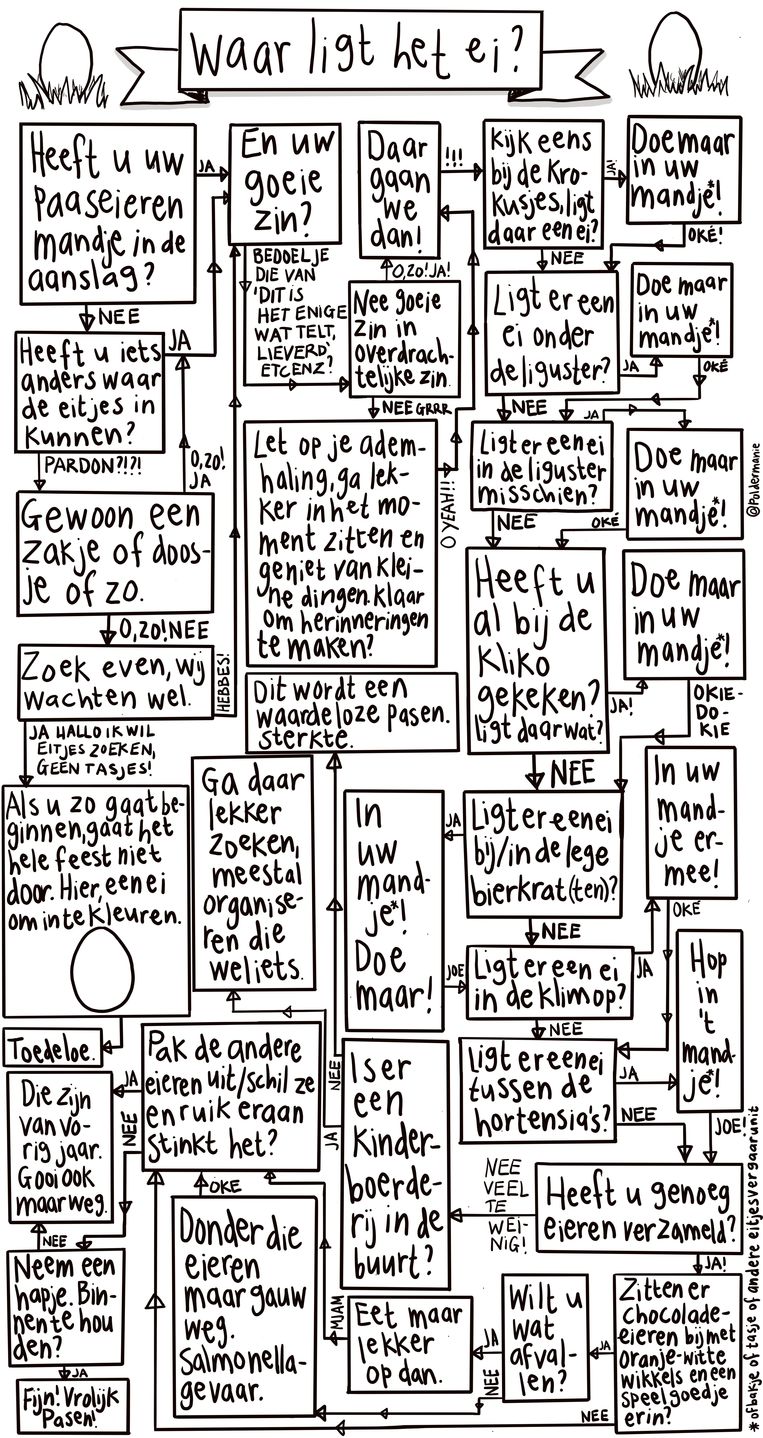 waar ligt het ei?
Heeft u uw
paaseieren
mandje in de
aanslag?
JA
NEE
Heeft u iets
anders waar
de eitjes in
kunnen?
JA
PARDON?!?!
Gewoon een
zakje of doos-
je of zo.
O, ZO!
JA
O, ZO! NEE
Zoek even, wij
wachten wel.
HEBBES!
JA HALLO IK WIL
EITJES ZOEKEN,
GEEN TASJES!
Als u zo gaat be-
ginnen, gaat het
hele feest niet
door. Hier, een ei
om in te kleuren.
Toedeloe.
En uw
goeie
zin?
BEDOEL JE
DIE VAN
'DIT IS
HET ENIGE
WAT TELT,
LIEVERD',
ETCENZ?
Nee goeie
zin in
overdrach-
telijke zin.
O, ZO! JA!
NEE GRRR
Let op je adem-
haling, ga lek-
ker in het mo-
ment zitten en
geniet van klei-
ne dingen. Klaar
om herinneringen
te maken?
O YEAH!!
Daar
gaan
we
dan!
!!!
Kijk eens
bij de kro-
kusjes, ligt
daar een ei?
JA!
Doe maar
in uw
mandje*!
OKÉ!
NEE
Ligt er een
ei onder
de liguster?
JA
Doe maar
in uw
mandje*!
OKÉ
NEE
Ligt er een ei
in de liguster
misschien?
JA
Doe maar
in uw
mandje*!
OKÉ
NEE
Heeft u
al bij de
kliko
gekeken?
ligt daar wat?
JA!
Doe maar
in uw
mandje*!
OKIE-
DO-
KIE
NEE
Ligt er een ei
bij/in de lege
bierkrat(ten)?
JA
In
uw
mand-
je*!
Doe
maar!
JOE
NEE
Ligt er een ei
in de klimop?
JA
In uw
mand-
je er-
mee!
OKÉ
NEE
Ligt er een ei
tussen de
hortensia's?
JA
Hop
in
't
mand-
je*!
JOE!
NEE
Heeft u genoeg
eieren verzameld?
NEE
VEEL
TE
WEI-
NIG!
JA!
Is er
een
kinder-
boerde-
rij in de
buurt?
NEE
Dit wordt een
waardeloze pasen.
sterkte.
JA
Ga daar
lekker
zoeken,
meestal
organise-
ren die
wel iets.
Zitten er
chocolade-
eieren bij met
oranje-witte
wikkels en een
speelgoedje
erin?
JA
NEE
Wilt u
wat
afval-
len?
JA
NEE
Eet maar
lekker
op dan.
MJAM
Donder die
eieren
maar gauw
weg.
Salmonella-
gevaar.
OKE
Pak de andere
eieren uit/schil ze
en ruik eraan
stinkt het?
JA
NEE
Die zijn
van vo-
rig jaar.
Gooi ook
maar weg.
NEE
Neem een
hapje. Bin-
nen te hou
den?
JA
Fijn! Vrolijk
Pasen!
@Foldermanie
* of bakje of tasje of andere eitjesvergaarunit